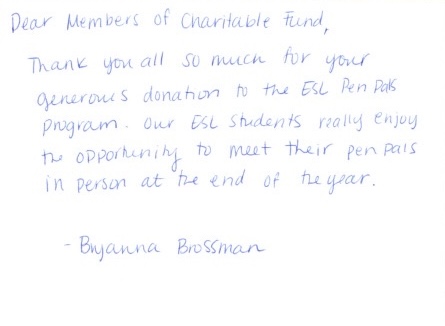 Dear Members of Charitable Fund,
Thank you all so much for your
generous donation to the ESL Pen Pals
program. Our ESL Students really enjoy
the opportunity to meet their pen pals
in person at the end of the year.
- Bryanna Brossman